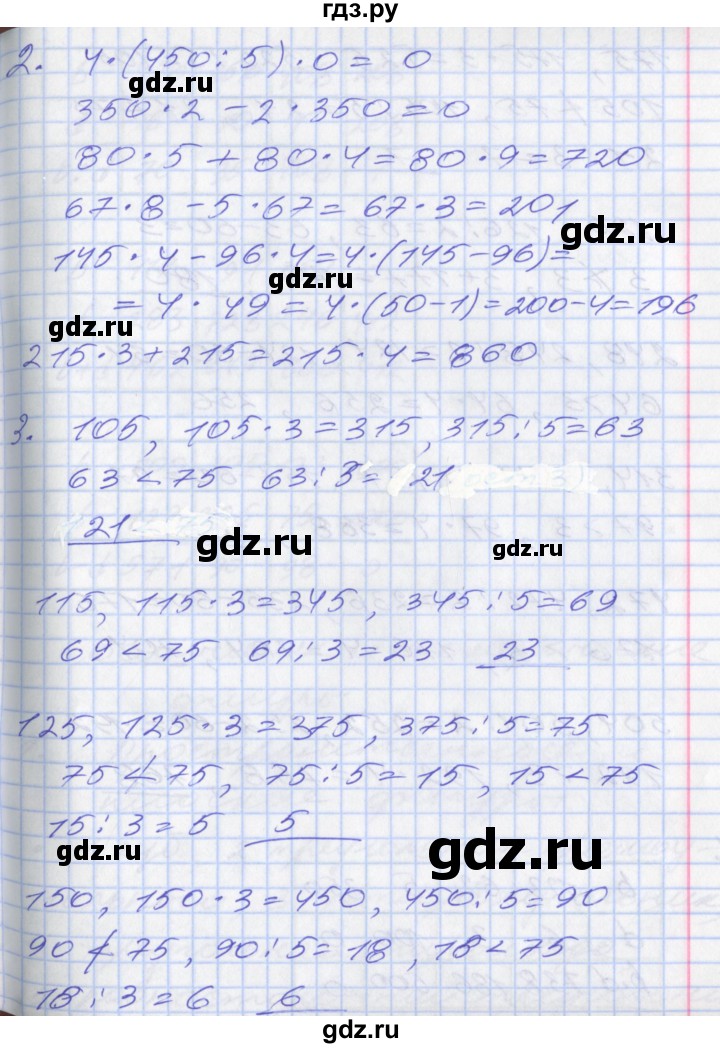 гдз.ру
2. 4·(450:5)·0= 0
gdz.ru
350·2-2·350=0
80·5+80·4=80·9=720
67·8-5·67=67·3=201
gdz.ru
145·4-96·4=4·(145-96)=
=4·49=4·(50-1)=200-4=196
gdz.ru
gdz.ru
215·3+215=215·4=860
3. 105, 105·3=315, 315:5=63
63<75 63:3= 21
21
gdz.ru
gdz.ru
115, 115·3=345, 345:5=69
69<75 69:3=23 23
125, 125·3=375, 375:5=75
75≮75, 75:5=15, 15<75
15:3=5 5
gdz.ru
gdz.ru
150, 150·3=450, 450:5=90
90≮75, 90:5=18, 18<75
18:3=6 6
gdz.ru